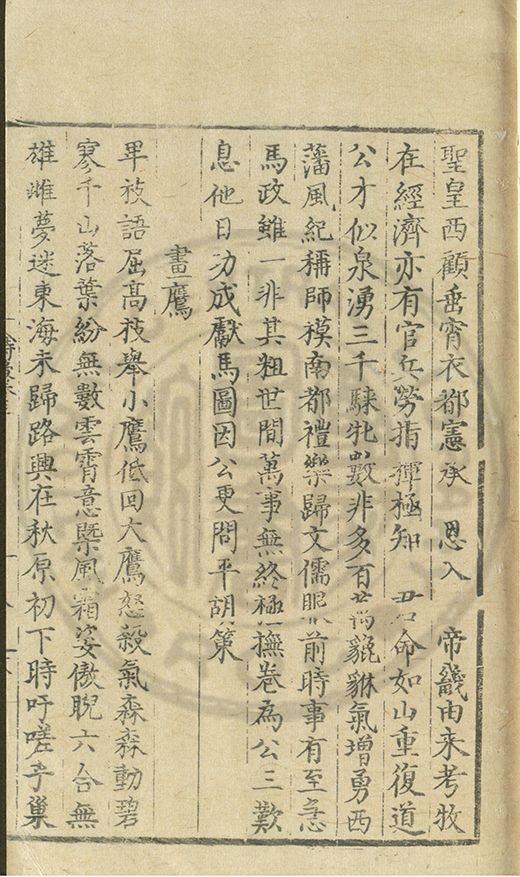 聖皇西顧垂宵衣都憲承 恩入 帝畿由来考牧
在經濟亦有官兵勞指揮極知 君命如山重復道
公才似泉湧三千騋牝數非多百萬貔貅氣增勇西
藩風紀稱師模南都禮樂歸文儒眼前時事有至急
馬政雖一非其粗世間萬事無終極撫卷為公三歎
息他日功成獻馬圖因公更問平胡策
畫鷹
畢技語屈高技舉小鷹低回大鷹怒殺氣森森動碧
寥千山落葉紛無數雲霄意槩風霜姿傲睨六合無
雄雌夢迷東海未歸路興在秋原初下時吁嗟乎巢